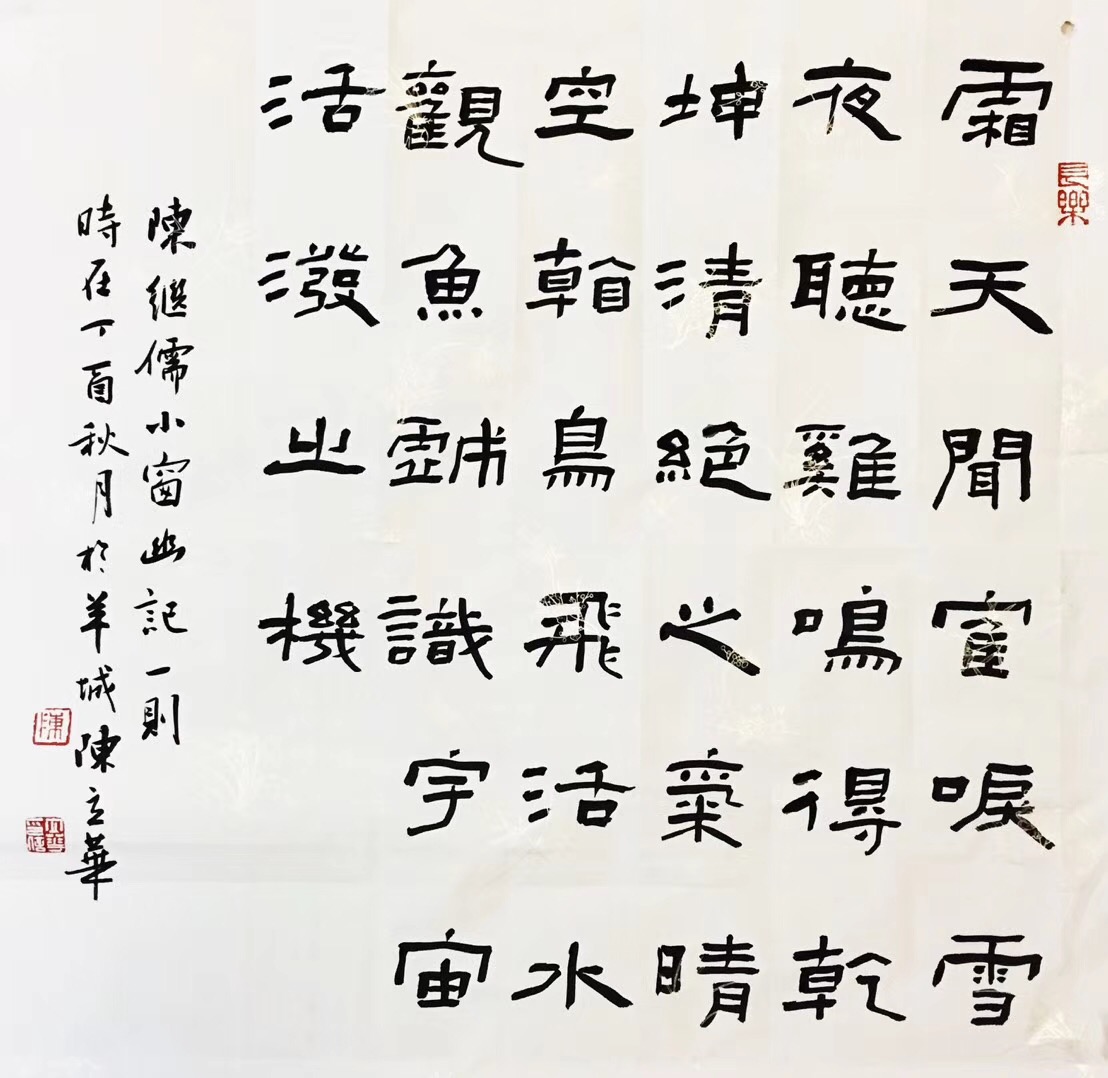 霜天聞寉唳雪
夜聽雞鳴得乾
坤清絕之氣晴
空看鳥飛活水
觀魚戲識宇宙
活潑之機
陳繼儒小窗幽記一則
時在丁酉秋月於羊城陳立華
長樂
陳